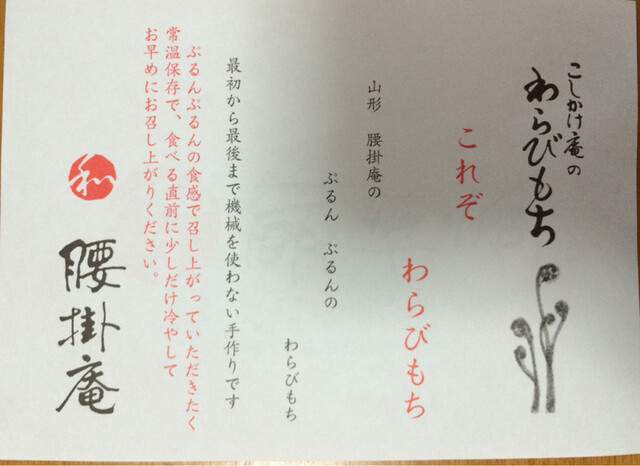 こしかけ庵の
わらびもち
これぞ
わらびもち
山形 腰掛庵の
ぷるん ぷるんの
わらびもち
最初から最後まで機械を使わない手作りです
ぷるんぷるんの食感で召し上がっていただきたく
常温保存で、食べる直前に少しだけ冷やして
お早めにお召し上がりください。
和
腰掛庵